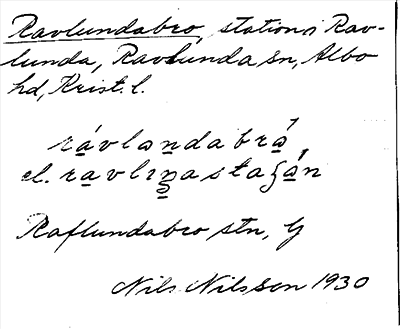 Ravlundabro, station i Rav-
lunda, Ravlunda sn, Albo
hd, Krist. l.
rávlandabrá,
el. ravlınasta
Raflundabro stn, G
Nils Nilsson 1930